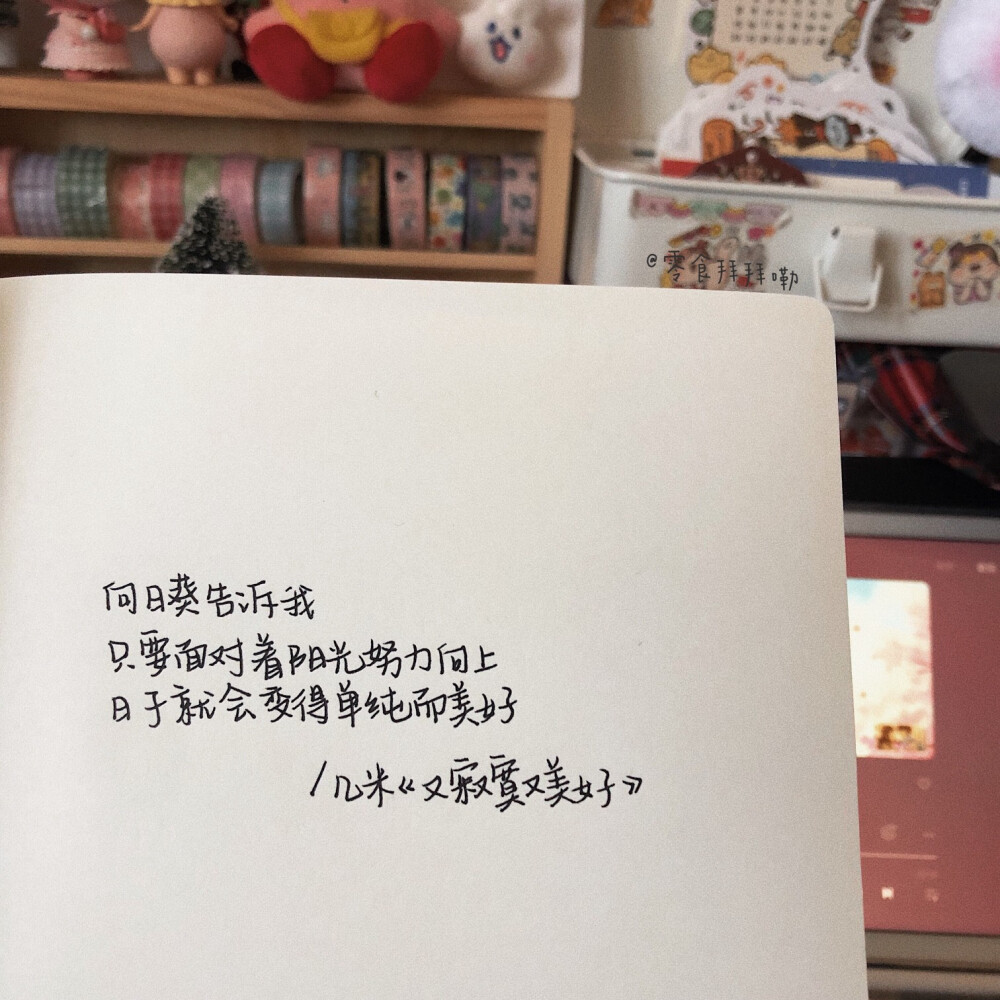 @零食拜拜嘞
向日葵告诉我
只要面对着阳光努力向上
日子就会变得单纯而美好
/几米《又寂寞又美好》